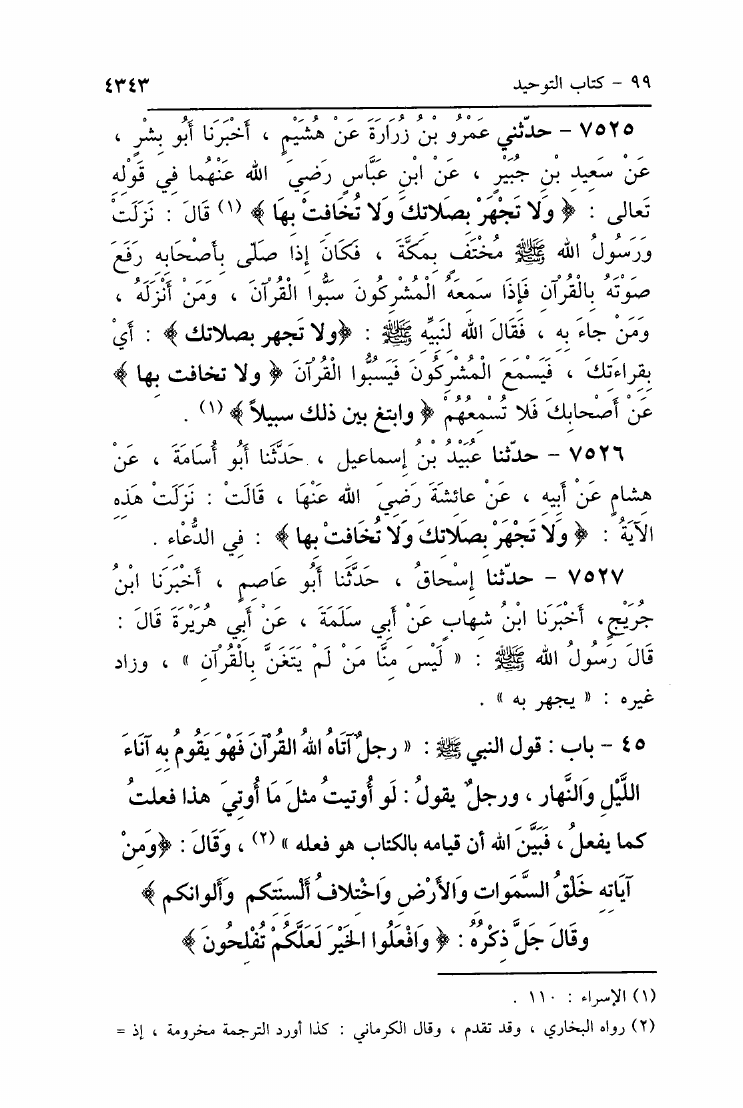 ٩٩ - كتاب التوحيد ٤٣٤٣
٧٥٢٥ - حدّثني عَمْرُو بْنُ زُرَارَةَ عَنْ هُشَيْمٍ ، أَخْبَرَنَا أَبُو بِشْرٍ ،
عَنْ سَعِيدِ بْنِ جُبَيْرٍ ، عَنْ ابْنِ عَبَّاسٍ رَضِيَ الله عَنْهُما فِي قَوْلِهِ
تَعالى : ﴿ وَلا تَجْهَرْ بِصَلاتِكَ وَلا تُخَافِتْ بِهَا ﴾ (١) قَالَ : نَزَلَتْ
وَرَسُولُ الله ﷺ مُخْتَفٍ بِمَكَّةَ ، فَكَانَ إِذا صَلّى بِأَصْحَابِهِ رَفَعَ
صَوْتَهُ بِالْقُرْآنِ فَإِذَا سَمِعَهُ الْمُشْرِكُونَ سَبُّوا الْقُرْآنَ ، وَمَنْ أَنْزَلَهُ ،
وَمَنْ جاءَ بِهِ ، فَقَالَ الله لِنَبِيِّهِ ﷺ : ﴿ولا تَجهر بصلاتك ﴾ : أَيْ
بِقِراءَتِكَ ، فَيَسْمَعَ الْمُشْرِكُونَ فَيَسُبُّوا الْقُرْآنَ ﴿ ولا تخافت بها ﴾
عَنْ أَصْحابِكَ فَلا تُسْمِعُهُمْ ﴿ وابتغ بين ذلك سبيلاً ﴾ (١) .
٧٥٢٦ - حدّثنا عُبَيْدُ بْنُ إسماعيل ، حَدَّثَنا أَبُو أُسَامَةَ ، عَنْ
هِشامٍ عَنْ أَبِيهِ ، عَنْ عائِشَةَ رَضِيَ الله عَنْهَا ، قَالَتْ : نَزَلَتْ هَذِهِ
الآيَةُ : ﴿ وَلا تَجْهَرْ بِصَلاتِكَ وَلا تُخَافِتْ بِها ﴾ : فِي الدُّعاءِ .
٧٥٢٧ - حدّثنا إِسْحاقُ ، حَدَّثَنا أَبُو عَاصِمٍ ، أَخْبَرَنا ابْنُ
جُرَيْجٍ، أَخْبَرَنا ابْنُ شِهابٍ عَنْ أَبِي سَلَمَةَ ، عَنْ أَبِي هُرَيْرَةَ قَالَ :
قَالَ رَسُولُ الله ﷺ : « لَيْسَ مِنَّا مَنْ لَمْ يَتَغَنَّ بِالْقُرْآنِ » ، وزاد
غيره : « يجهر به » .
٤٥ - باب : قول النبي ﷺ : « رجلٌ آتَاهُ اللهُ القُرْآنَ فَهْوَ يَقُومُ بِهِ آنَاءَ
اللَّيْلِ وَالنَّهارِ ، ورجلٌ يقولُ : لَو أُوتيتُ مثلَ مَا أُوتِيَ هذا فعلتُ
كما يفعلُ ، فَبَيَّنَ الله أن قيامه بالكتاب هو فعله » (٢) ، وَقَالَ : ﴿وَمِنْ
آيَاتِهِ خَلْقُ السَّمَوات وَالأَرْضِ وَاخْتِلافُ أَلْسِنَتِكم وَأَلوانكم ﴾
وقَالَ جَلَّ ذِكْرُهُ : ﴿ وَافْعَلُوا الخَيْرَ لَعَلَّكُمْ تُفْلِحُونَ ﴾
(١) الإسراء : ١١٠ .
(٢) رواه البخاري ، وقد تقدم ، وقال الكرماني : كذا أورد الترجمة مخرومة ، إذ =